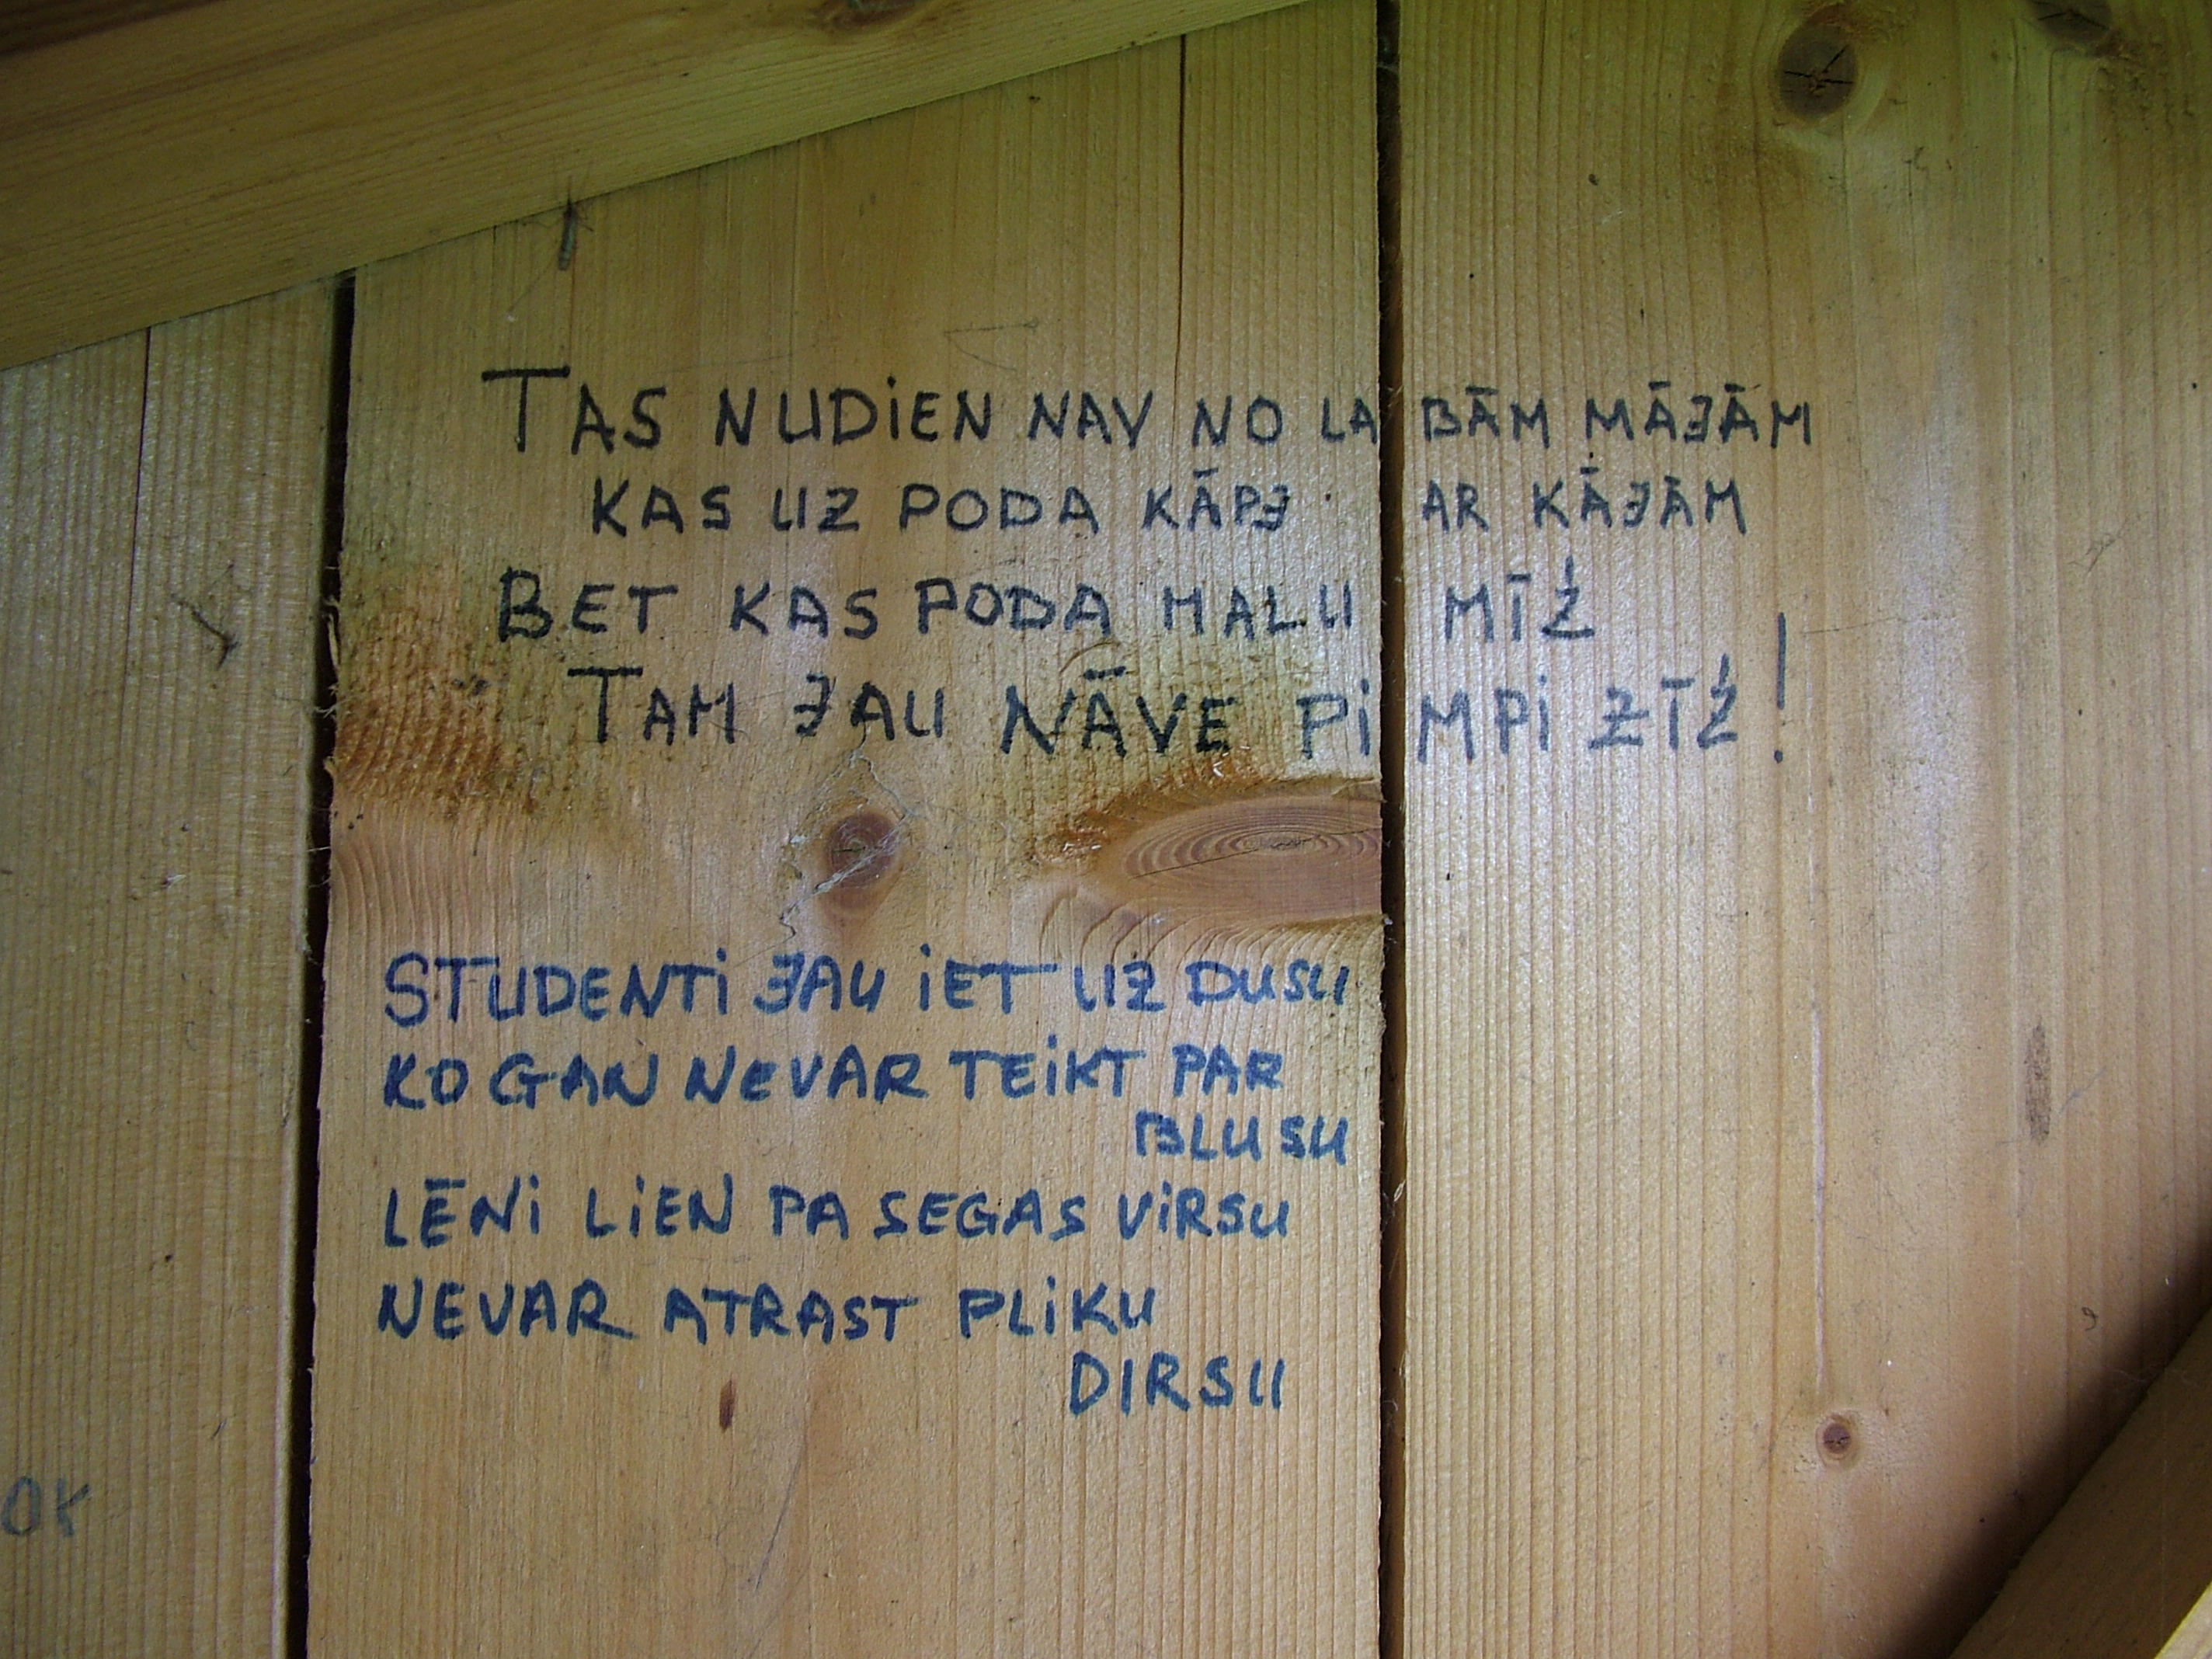 TAS NUDIEN NAV NO LABĀM MĀJĀM
KAS UZ PODA KĀPJ AR KĀJĀM
BET KAS PODA MALU MĪŽ
TAM JAU NĀVE PIMPI ZĪŽ!
STUDENTI JAU IET UZ DUSU
KO GAN NEVAR TEIKT PAR
BLUSU
LĒNI LIEN PA SEGAS VIRSU
NEVAR ATRAST PLIKU
DIRSU
OK